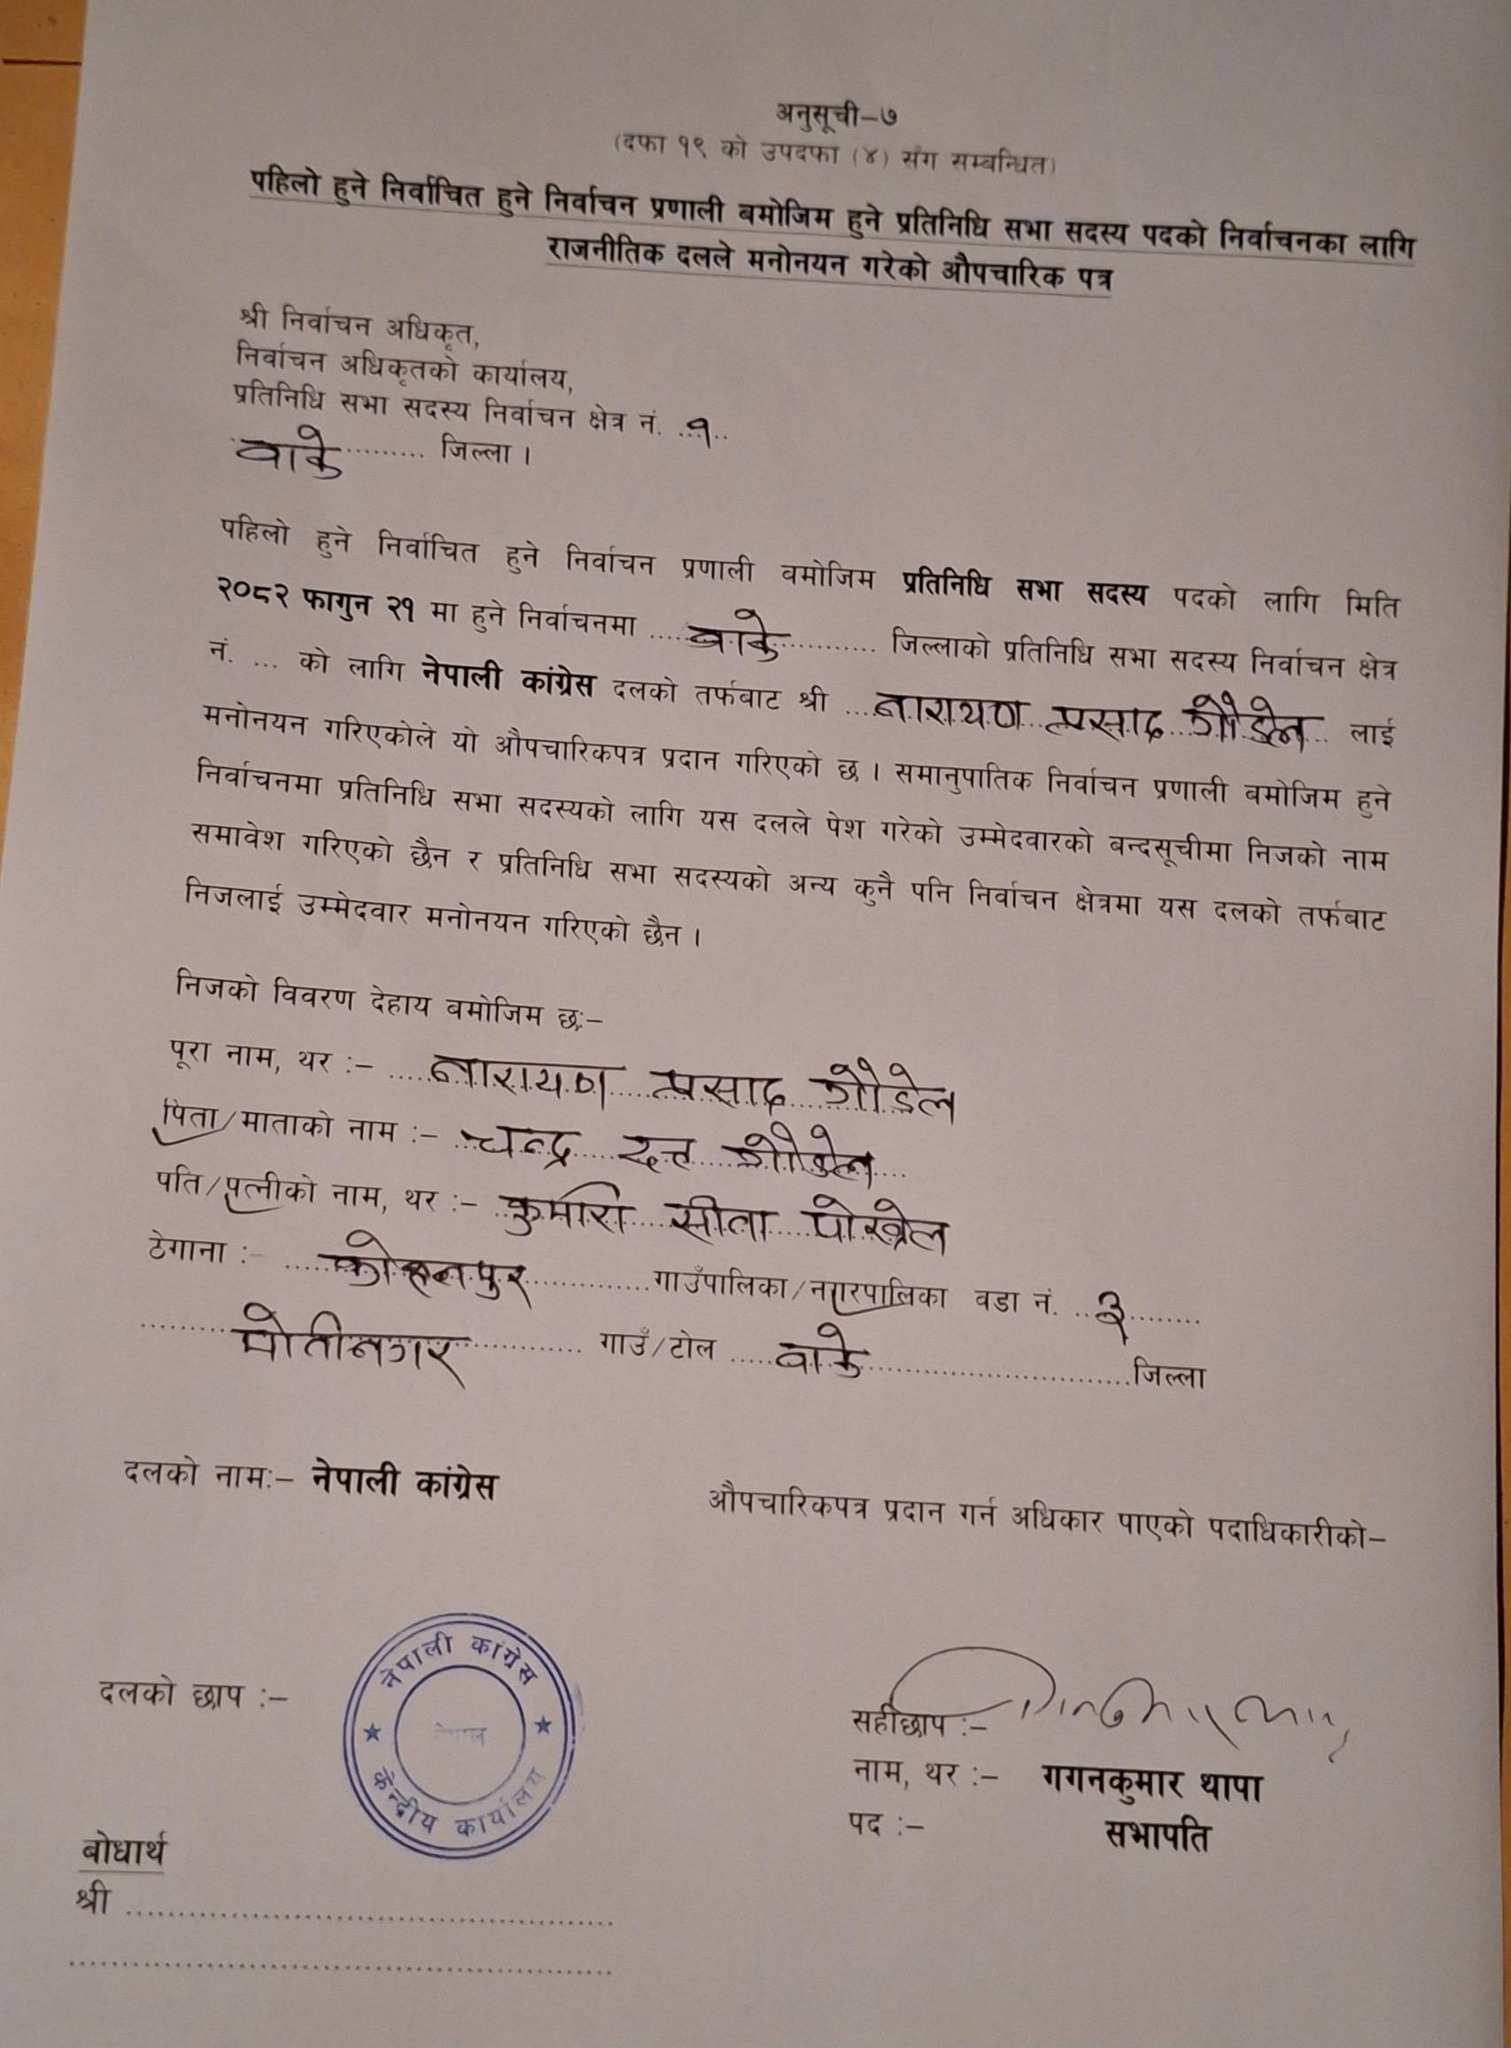 अनुसूची–७
(दफा १९ को उपदफा (४) सँग सम्बन्धित)
पहिलो हुने निर्वाचित हुने निर्वाचन प्रणाली बमोजिम हुने प्रतिनिधि सभा सदस्य पदको निर्वाचनका लागि
राजनीतिक दलले मनोनयन गरेको औपचारिक पत्र
श्री निर्वाचन अधिकृत,
निर्वाचन अधिकृतको कार्यालय,
प्रतिनिधि सभा सदस्य निर्वाचन क्षेत्र नं. ..१..
वाके ......... जिल्ला ।
पहिलो हुने निर्वाचित हुने निर्वाचन प्रणाली वमोजिम प्रतिनिधि सभा सदस्य पदको लागि मिति
२०८२ फागुन २१ मा हुने निर्वाचनमा ....वाके............ जिल्लाको प्रतिनिधि सभा सदस्य निर्वाचन क्षेत्र
नं. ... को लागि नेपाली कांग्रेस दलको तर्फबाट श्री ...नारायण प्रसाद गौडेल... लाई
मनोनयन गरिएकोले यो औपचारिकपत्र प्रदान गरिएको छ । समानुपातिक निर्वाचन प्रणाली बमोजिम हुने
निर्वाचनमा प्रतिनिधि सभा सदस्यको लागि यस दलले पेश गरेको उम्मेदवारको बन्दसूचीमा निजको नाम
समावेश गरिएको छैन र प्रतिनिधि सभा सदस्यको अन्य कुनै पनि निर्वाचन क्षेत्रमा यस दलको तर्फबाट
निजलाई उम्मेदवार मनोनयन गरिएको छैन ।
निजको विवरण देहाय बमोजिम छः–
पूरा नाम, थर :– ....नारायण प्रसाद गौडेल
पिता/माताको नाम :– ..चन्द्र दत्त गौडेल....
पति/पत्नीको नाम, थर :– ..कुमारी सीता पोखेल
ठेगाना :– ......कोहलपुर............गाउँपालिका/नगरपालिका वडा नं. ..३........
.........मोतीनगर........... गाउँ/टोल .....वाके............................जिल्ला
दलको नाम:– नेपाली कांग्रेस
औपचारिकपत्र प्रदान गर्न अधिकार पाएको पदाधिकारीको–
दलको छाप :–
नेपाली कांग्रेस
नेपाल
केन्द्रीय कार्यालय
सहीछाप :–
नाम, थर :– गगनकुमार थापा
पद :– सभापति
बोधार्थ
श्री ..................................................
........................................................